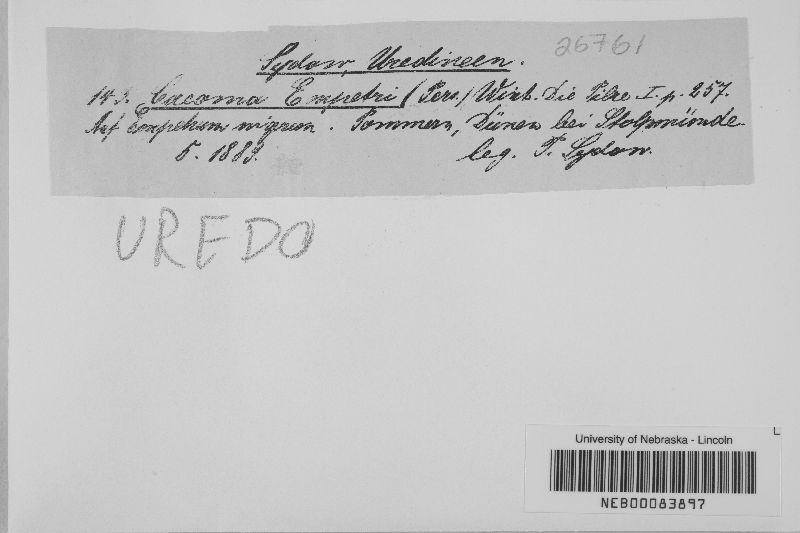 26761
Sydow, Uredineen.
143. Caeoma Empetri (Pers.) Wint. Die Pilze I. p. 257.
Auf Empetrum nigrum. Pommern, Dünen bei Stolpmünde
5. 1883. leg. P. Sydow.
UREDO
L
University of Nebraska - Lincoln
NEB00083897